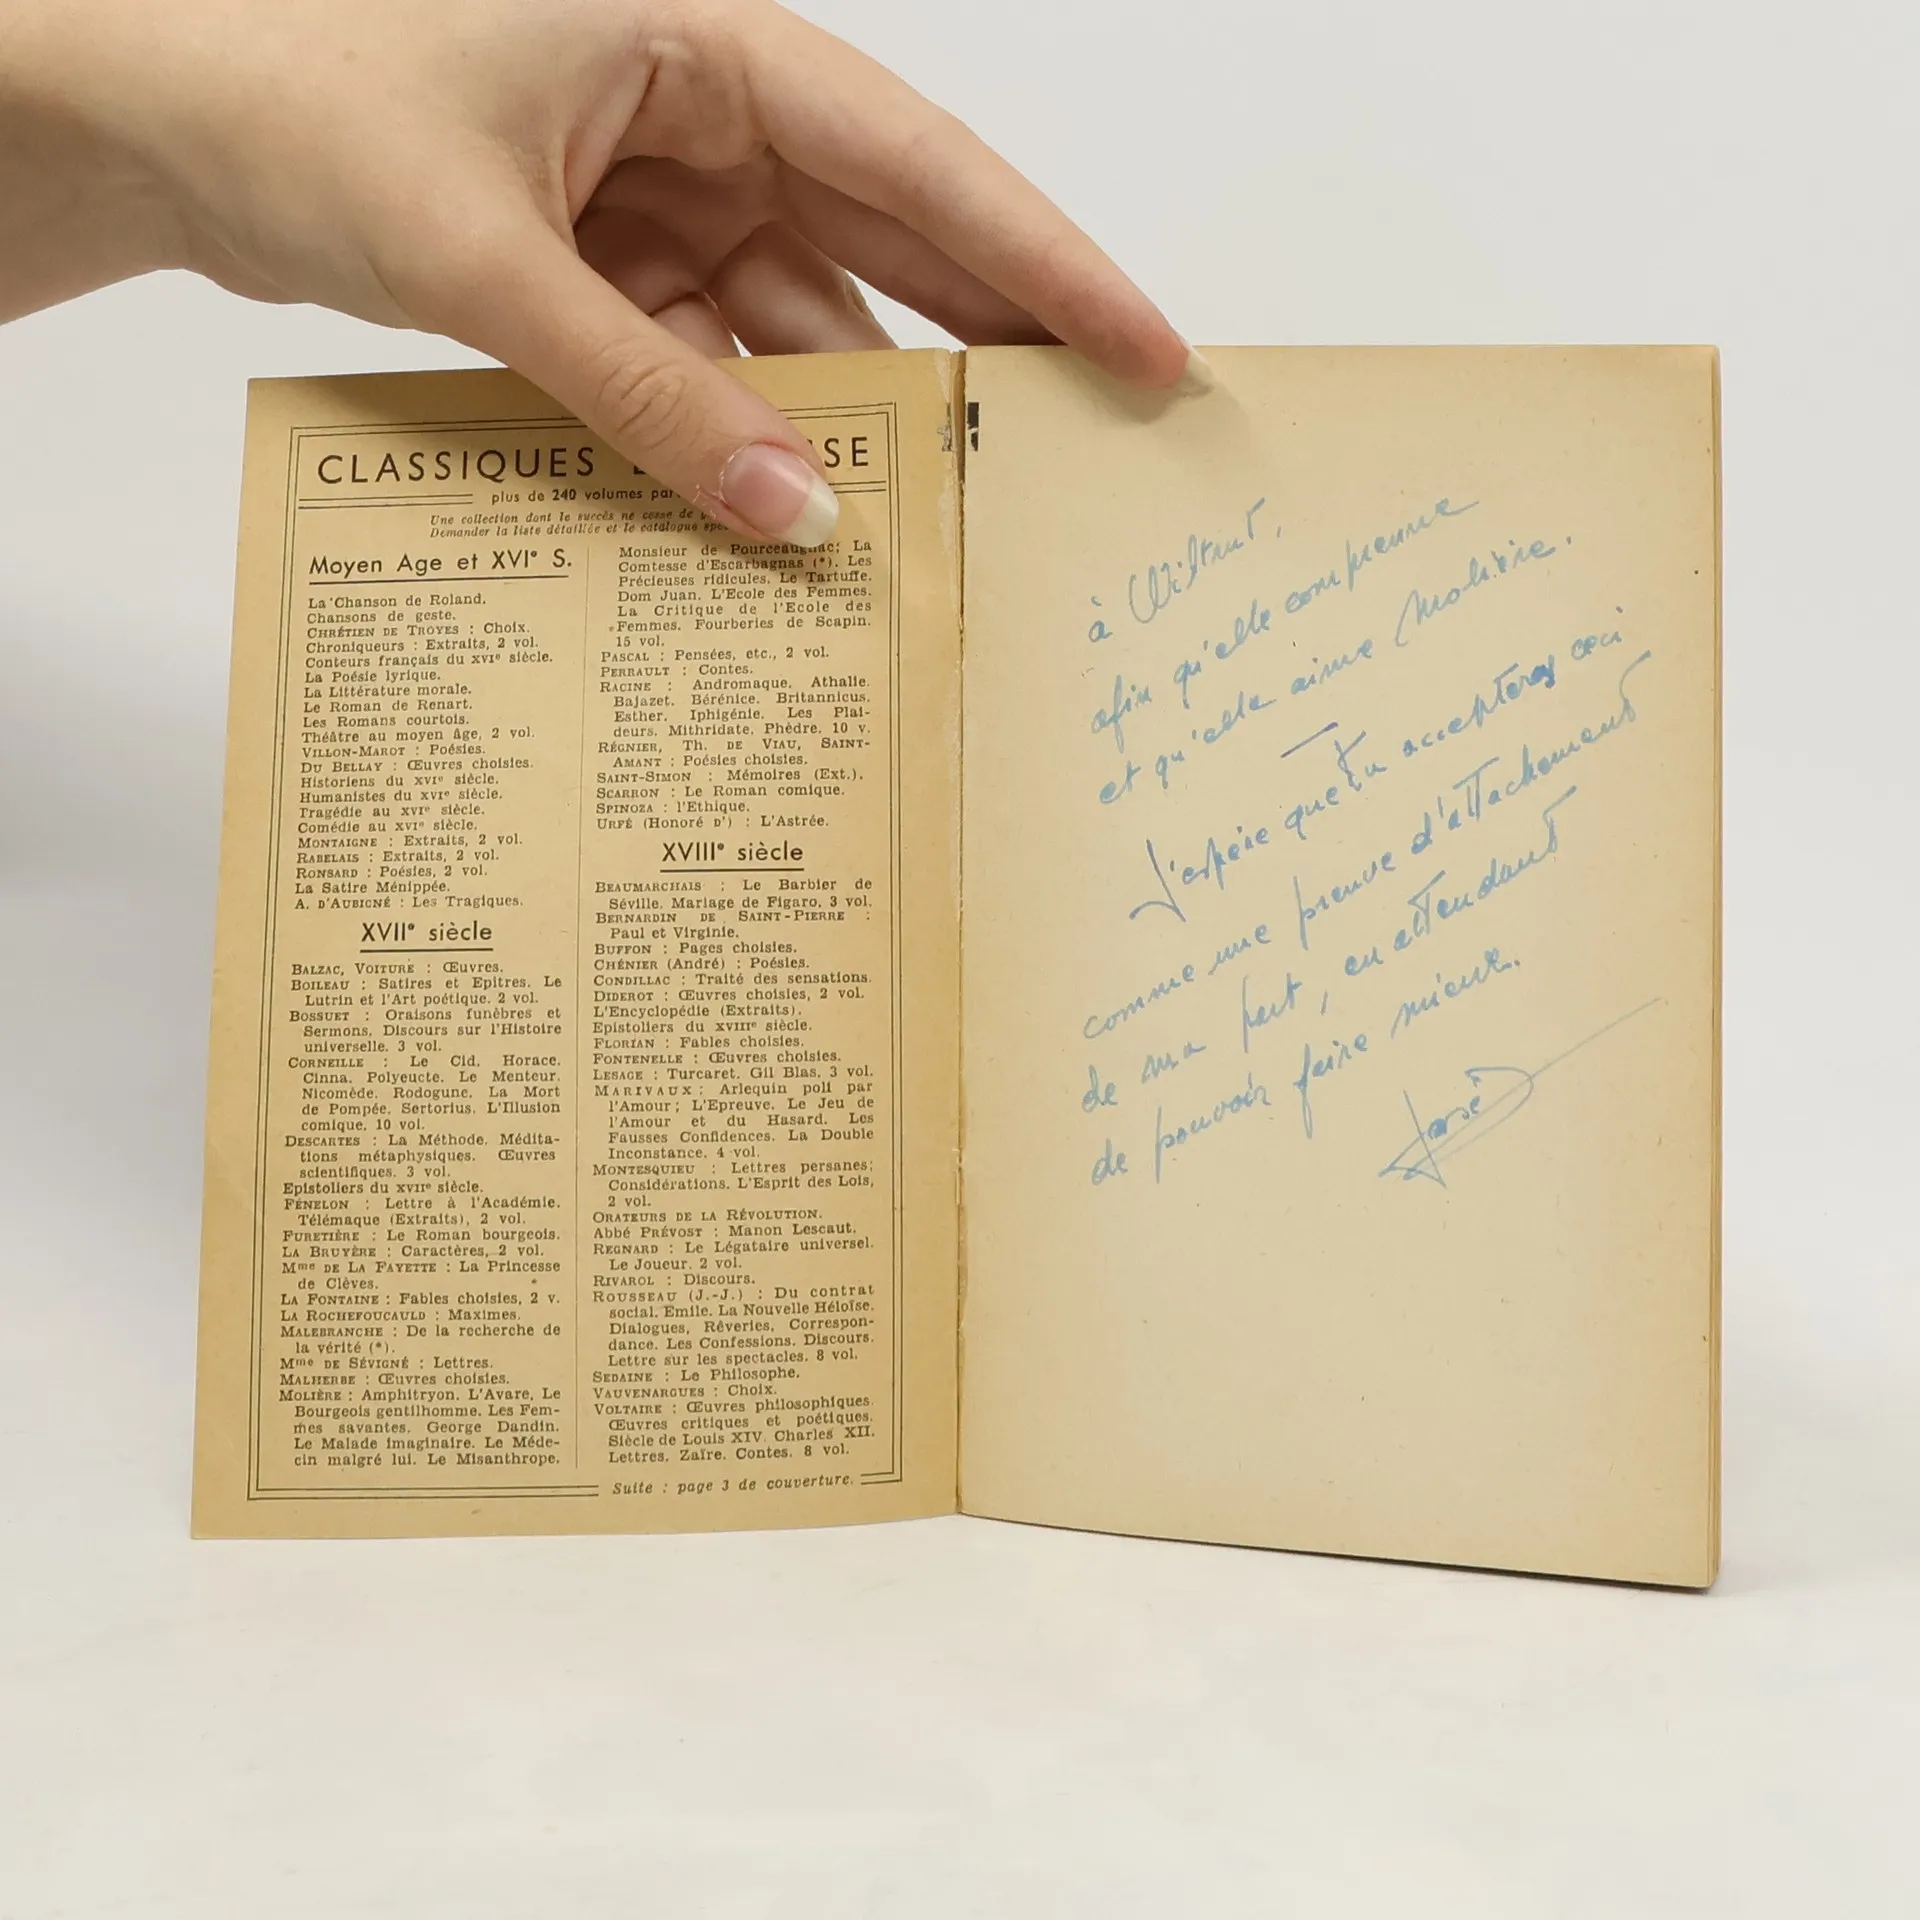 CLASSIQUES SE
plus de 240 volumes par
Une collection dont le succès ne cesse de
Demander la liste détaillée et le catalogue
Moyen Age et XVIᵉ S.
La Chanson de Roland.
Chansons de geste.
CHRÉTIEN DE TROYES : Choix.
Chroniqueurs : Extraits, 2 vol.
Conteurs français du XVIᵉ siècle.
La Poésie lyrique.
La Littérature morale.
Le Roman de Renart.
Les Romans courtois.
Théâtre au moyen âge, 2 vol.
VILLON-MAROT : Poésies.
DU BELLAY : Œuvres choisies.
Historiens du XVIᵉ siècle.
Humanistes du XVIᵉ siècle.
Tragédie au XVIᵉ siècle.
Comédie au XVIᵉ siècle.
MONTAIGNE : Extraits, 2 vol.
RABELAIS : Extraits, 2 vol.
RONSARD : Poésies, 2 vol.
La Satire Ménippée.
A. D'AUBIGNÉ : Les Tragiques.
XVIIᵉ siècle
BALZAC, VOITURE : Œuvres.
BOILEAU : Satires et Epitres. Le
Lutrin et l'Art poétique. 2 vol.
BOSSUET : Oraisons funèbres et
Sermons. Discours sur l'Histoire
universelle. 3 vol.
CORNEILLE : Le Cid. Horace.
Cinna. Polyeucte. Le Menteur.
Nicomède. Rodogune. La Mort
de Pompée. Sertorius. L'Illusion
comique. 10 vol.
DESCARTES : La Méthode. Médita-
tions métaphysiques. Œuvres
scientifiques. 3 vol.
Epistoliers du XVIIᵉ siècle.
FÉNELON : Lettre à l'Académie.
Télémaque (Extraits), 2 vol.
FURETIÈRE : Le Roman bourgeois.
LA BRUYÈRE : Caractères, 2 vol.
Mᵐᵉ DE LA FAYETTE : La Princesse
de Clèves.
LA FONTAINE : Fables choisies, 2 v.
LA ROCHEFOUCAULD : Maximes.
MALEBRANCHE : De la recherche de
la vérité (*).
Mᵐᵉ DE SÉVIGNÉ : Lettres.
MALHERBE : Œuvres choisies.
MOLIÈRE : Amphitryon. L'Avare. Le
Bourgeois gentilhomme. Les Fem-
mes savantes. George Dandin.
Le Malade imaginaire. Le Méde-
cin malgré lui. Le Misanthrope.
Monsieur de Pourceaugnac; La
Comtesse d'Escarbagnas (*). Les
Précieuses ridicules. Le Tartuffe.
Dom Juan. L'Ecole des Femmes.
La Critique de l'Ecole des
Femmes. Fourberies de Scapin.
15 vol.
PASCAL : Pensées, etc., 2 vol.
PERRAULT : Contes.
RACINE : Andromaque. Athalie.
Bajazet. Bérénice. Britannicus.
Esther. Iphigénie. Les Plai-
deurs. Mithridate. Phèdre. 10 v.
RÉGNIER, TH. DE VIAU, SAINT-
AMANT : Poésies choisies.
SAINT-SIMON : Mémoires (Ext.).
SCARRON : Le Roman comique.
SPINOZA : l'Ethique.
URFÉ (Honoré D') : L'Astrée.
XVIIIᵉ siècle
BEAUMARCHAIS : Le Barbier de
Séville. Mariage de Figaro. 3 vol.
BERNARDIN DE SAINT-PIERRE :
Paul et Virginie.
BUFFON : Pages choisies.
CHÉNIER (André) : Poésies.
CONDILLAC : Traité des sensations.
DIDEROT : Œuvres choisies, 2 vol.
L'Encyclopédie (Extraits).
Epistoliers du XVIIIᵉ siècle.
FLORIAN : Fables choisies.
FONTENELLE : Œuvres choisies.
LESAGE : Turcaret. Gil Blas. 3 vol.
MARIVAUX : Arlequin poli par
l'Amour; L'Epreuve. Le Jeu de
l'Amour et du Hasard. Les
Fausses Confidences. La Double
Inconstance. 4 vol.
MONTESQUIEU : Lettres persanes;
Considérations. L'Esprit des Lois,
2 vol.
ORATEURS DE LA RÉVOLUTION.
Abbé PRÉVOST : Manon Lescaut.
REGNARD : Le Légataire universel.
Le Joueur. 2 vol.
RIVAROL : Discours.
ROUSSEAU (J.-J.) : Du contrat
social. Emile. La Nouvelle Héloïse.
Dialogues, Rêveries, Correspon-
dance. Les Confessions. Discours.
Lettre sur les spectacles. 8 vol.
SEDAINE : Le Philosophe.
VAUVENARGUES : Choix.
VOLTAIRE : Œuvres philosophiques.
Œuvres critiques et poétiques.
Siècle de Louis XIV. Charles XII.
Lettres. Zaïre. Contes. 8 vol.
Suite : page 3 de couverture.
à Wiltrud,
afin qu'elle comprenne
et qu'elle aime Molière.
J'espère que tu accepteras ceci
comme une preuve d'attachement
de ma part, en attendant
de pouvoir faire mieux.
José